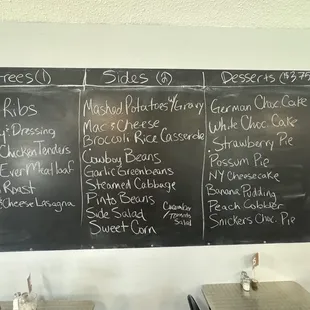 trees (1)
Ribs
& Dressing
Chicken Tenders
Ever Meatloaf
Roast
& Cheese Lasagna
Sides (2)
Mashed Potatoes w/ Gravy
Mac & Cheese
Broccoli Rice Casserole
Cowboy Beans
Garlic Greenbeans
Steamed Cabbage
Pinto Beans
Side Salad
Cucumber
/Tomato
Salad
Sweet Corn
Desserts ($3.75
German Choc. Cake
White Choc. Cake
Strawberry Pie
Possum Pie
NY Cheesecake
Banana Pudding
Peach Cobbler
Snickers Choc. Pie